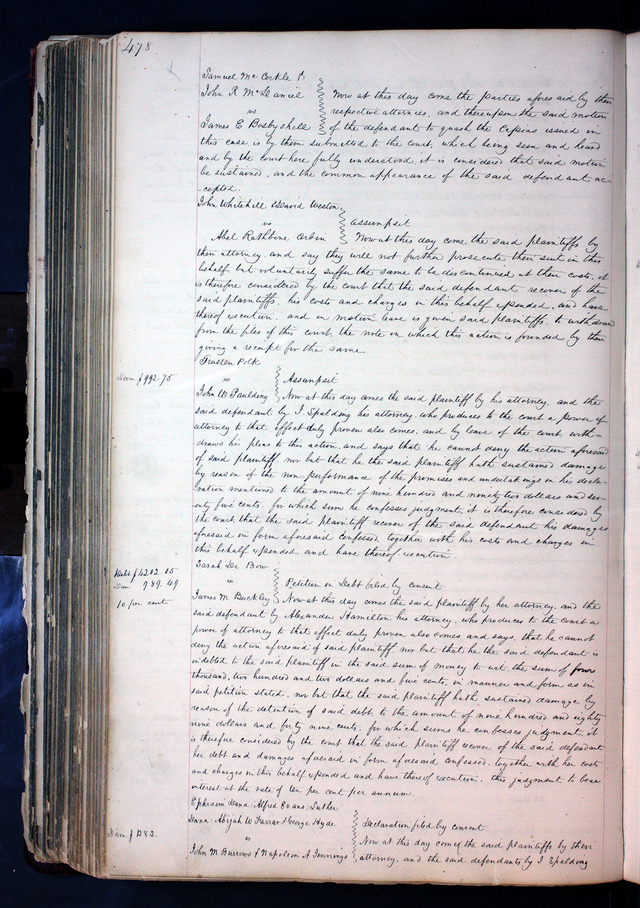 478
Samuel Mc Corkle &
John R McDaniel
vs
James E Bosbyshell
Now at this day come the parties aforesaid by their
respective attornies, and thereupon the said motion
of the defendant to quash the Capias issued in
this case, is by them submitted to the court, which being seen and heard
and by the court here fully understood, it is considered that said motion
be sustained, and the common appearance of the said defendant ac-
cepted.
John Whitehill David Weston
vs
Abel Rathbone Corbin
assumpsit
Now at this day come the said plaintiffs by
their attorney, and say they will not further prosecute their suit in this
behalf but voluntarily suffer the same to be discontinued at their costs, it
is therefore considered by the court that the said defendant recover of the
said plaintiffs, his costs and charges in this behalf expended, and have
thereof execution, and on motion leave is given said plaintiffs, to withdraw
from the files of this court, the note on which this action is founded by their
giving a receipt for the same
Trusten Polk
vs
John W Paulding
Dam $992.75
Assumpsit
Now at this day comes the said plaintiff by his attorney, and the
said defendant by J. Spalding his attorney, who produces to the court a power of
attorney to that effect duly proven also comes, and by leave of the court with-
draws his pleas to this action, and says that he cannot deny the action aforesaid
of said plaintiff nor but that he the said plaintiff hath sustained damage
by reason of the non-performance of the promises and undertakings in his decla-
ration mentioned to the amount of nine hundred and ninety two dollars and sev-
enty five cents, for which sum he confesses judgment, it is therefore considered by
the court that the said plaintiff recover of the said defendant his damages
aforesaid in form aforesaid confessed, together with his costs and charges in
this behalf expended, and have thereof execution
Sarah De Bow
vs
James M. Buckley
Debt $4202.05
Dam 989.49
10 per cent
Petition in Debt filed by consent
Now at this day comes the said plaintiff by her attorney, and the
said defendant by Alexander Hamilton his attorney, who produces to the court a
power of attorney to that effect duly proven also comes and says, that he cannot
deny the action aforesaid of said plaintiff, nor but that he the said defendant is
indebted to the said plaintiff in the said sum of money to wit, the sum of four
thousand, two hundred and two dollars and five cents, in manner and form as in
said petition stated, nor but that the said plaintiff hath sustained damage by
reason of the detention of said debt to the amount of nine hundred and eighty
nine dollars and forty nine cents, for which sums he confesses judgment, it
is therefore considered by the court that the said plaintiff recover of the said defendant
her debt and damages aforesaid in form aforesaid confessed, together with her costs
and charges in this behalf expended and have thereof execution, this judgment to bear
interest at the rate of ten per cent per annum.
Ephraim Dana Alfred Evans Luther
Dana Abijah W Farrar & George Hyde
vs
John M Burrows & Napoleon A Jennings
Declaration filed by consent
Now at this day comes the said plaintiffs by their
attorney, and the said defendants by J. Spalding